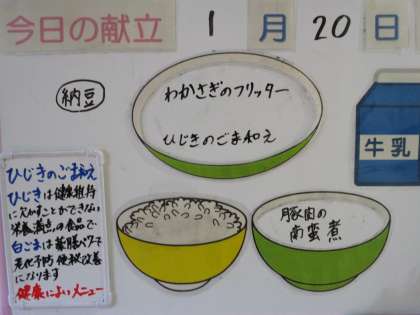 今日の献立 1月20日
納豆
わかさぎのフリッター
ひじきのごま和え
牛乳
ひじきのごま和え
ひじきは健康維持
に欠かすことができない
栄養満点の食品で
白ごまは薬膳パワーで
老化予防 便秘改善
になります
健康によいメニュー
豚肉の
南蛮煮